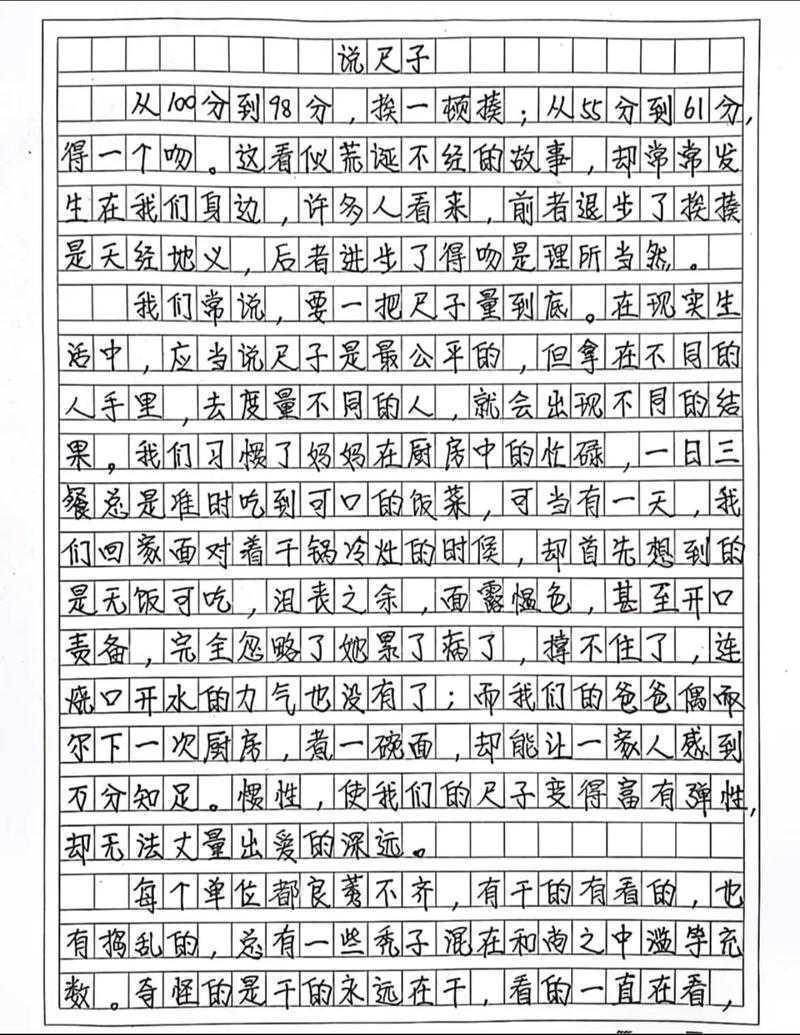 说尺子
从100分到98分，挨一顿揍；从55分到61分，
得一个吻。这看似荒诞不经的故事，却常常发
生在我们身边，许多人看来，前者退步了挨揍
是天经地义，后者进步了得吻是理所当然。
我们常说，要一把尺子量到底。在现实生
活中，应当说尺子是最公平的，但拿在不同的
人手里，去度量不同的人，就会出现不同的结
果。我们习惯了妈妈在厨房中的忙碌，一日三
餐总是准时吃到可口的饭菜，可当有一天，我
们回家面对着干锅冷灶的时候，却首先想到的
是无饭可吃，沮丧之余，面露愠色，甚至开口
责备，完全忽略了她累了病了，撑不住了，连
烧口开水的力气也没有了；而我们的爸爸偶而
尔下一次厨房，煮一碗面，却能让一家人感到
万分知足。惯性，使我们的尺子变得富有弹性，
却无法丈量出爱的深远。
每个单位都良莠不齐，有干的有看的，也
有捣乱的，总有一些秃子混在和尚之中滥竽充
数。奇怪的是干的永远在干，看的一直在看，